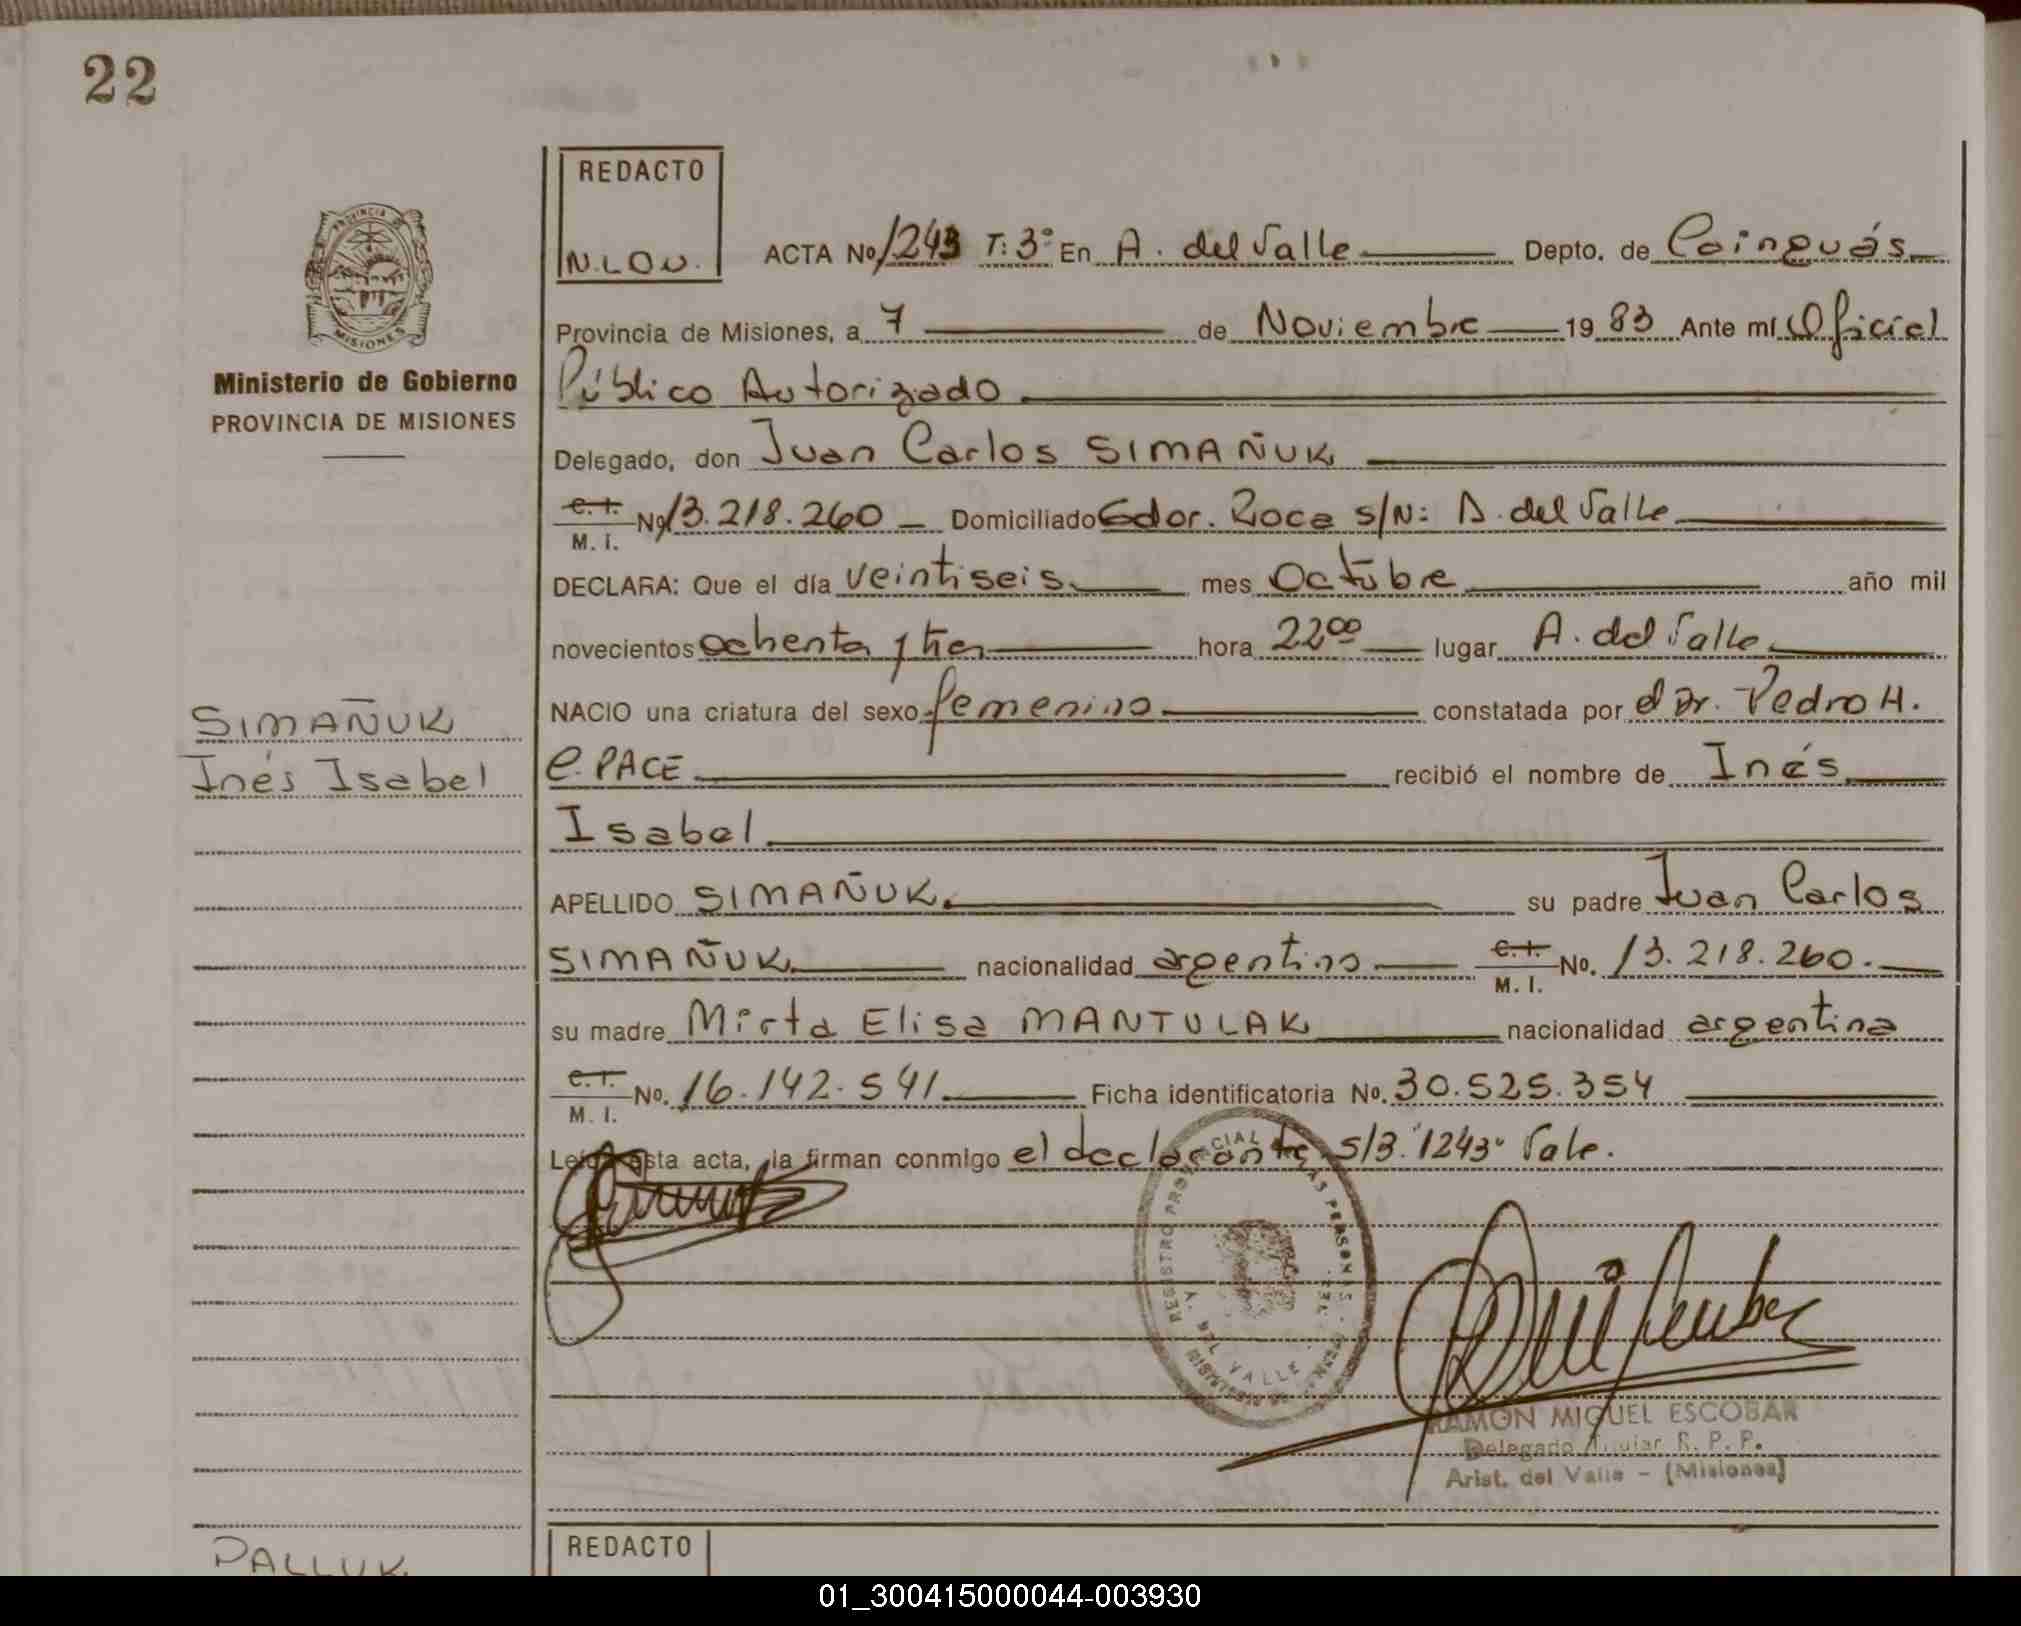 22
REDACTO
N.L.O.N.
ACTA No 1243 T: 3º En A. del Valle Depto. de Cainguás
Provincia de Misiones, a 7 de Noviembre 19 83 Ante mí Oficial
Público Autorizado
Delegado, don Juan Carlos SIMAÑUK
C. I. M. I. No 13.218.260 Domiciliado Gdor. Roca s/N: A. del Valle
DECLARA: Que el día veintiseis mes Octubre año mil
novecientos ochenta y tres hora 22 00 lugar A. del Valle
NACIO una criatura del sexo femenino constatada por el Dr. Pedro H.
C. PACE recibió el nombre de Inés
Isabel
APELLIDO SIMAÑUK. su padre Juan Carlos
SIMAÑUK nacionalidad argentino C. I. M. I. No. 13.218.260.
su madre Mirta Elisa MANTULAK nacionalidad argentina
C. I. M. I. No. 16.142.541 Ficha identificatoria No. 30.525.354
Leída esta acta, la firman conmigo el declarante, s/B. "1243" Vale.
PROVINCIA DE MISIONES
Ministerio de Gobierno
PROVINCIA DE MISIONES
SIMAÑUK
Inés Isabel
REGISTRO PROVINCIAL DE LAS PERSONAS
A. DEL VALLE
MISIONES
RAMON MIGUEL ESCOBAR
Delegado Titular R. P. P.
Arist. del Valle - (Misiones)
PALLUK
REDACTO
01_300415000044-003930